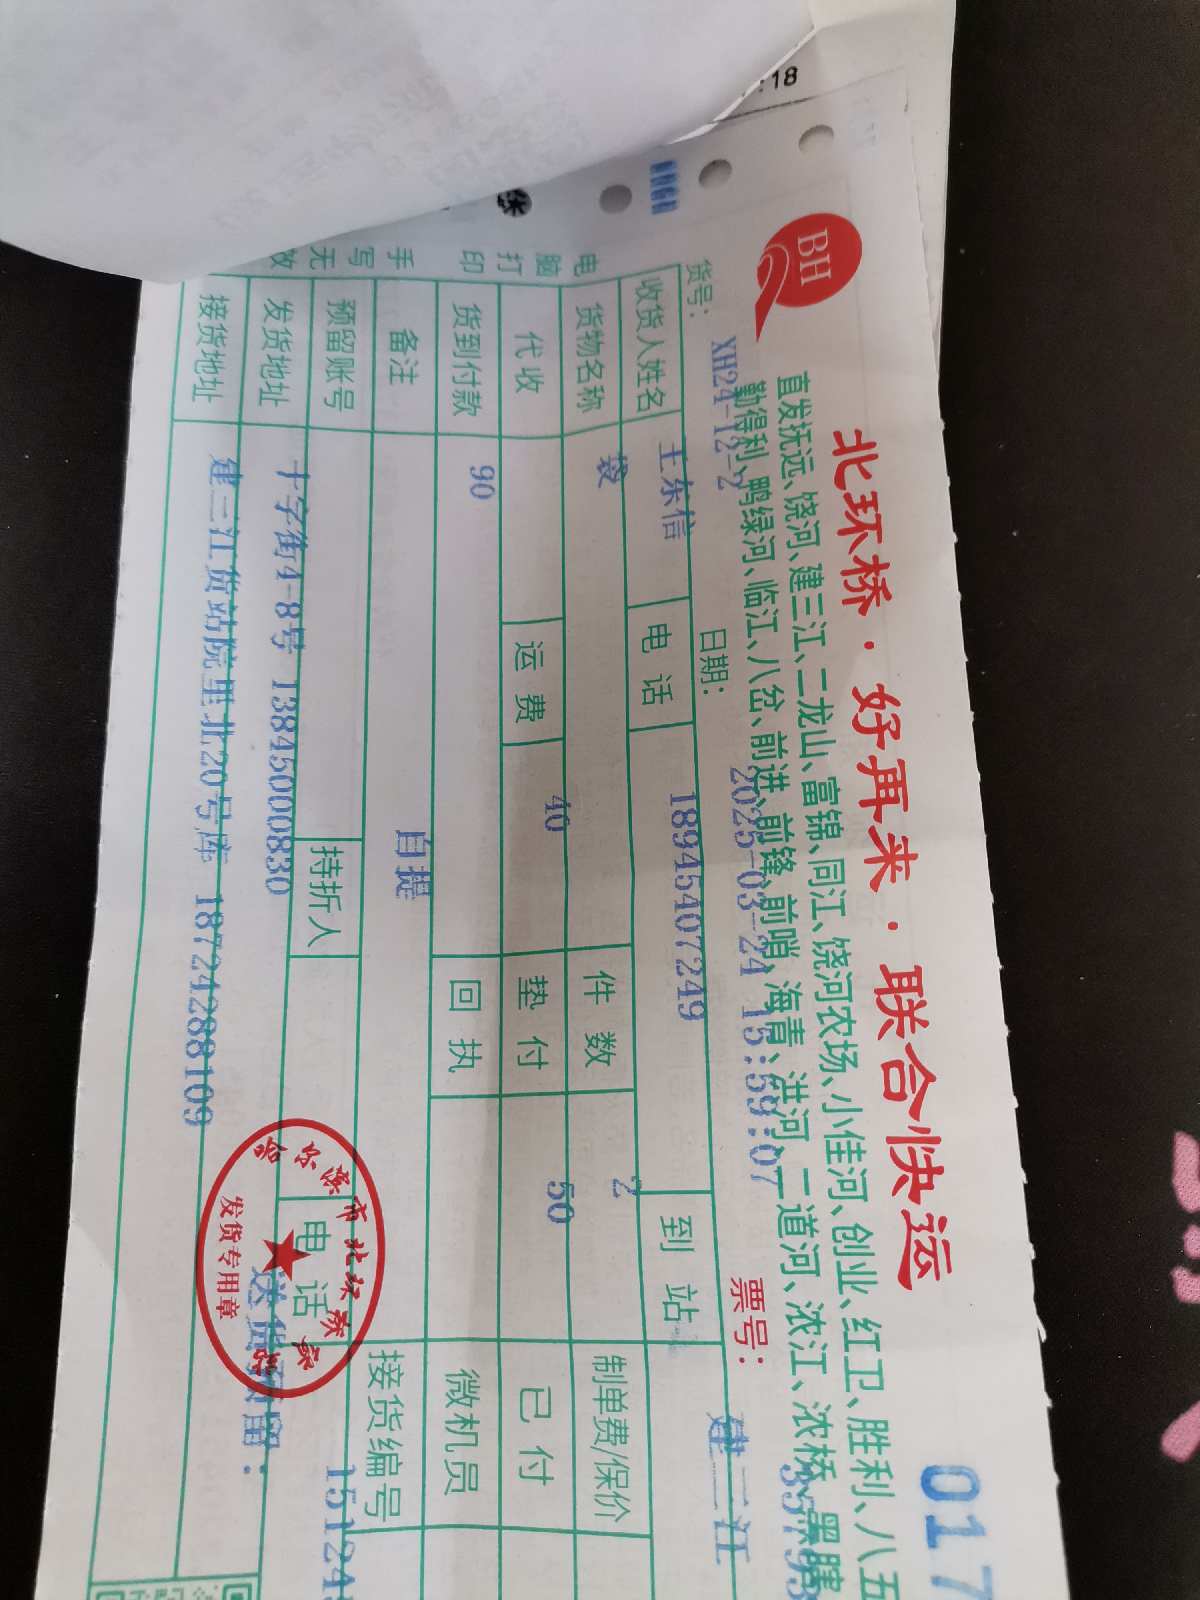 :18
BH
北环桥·好再来·联合快运
017
直发抚远、饶河、建三江、二龙山、富锦、同江、饶河农场、小佳河、创业、红卫、胜利、八五
勤得利、鸭绿河、临江、八岔、前进、前锋、前哨、海青、洪河、二道河、浓江、浓桥、黑瞎
货号: XH24-12-2 日期: 2025-03-24 15:59:07 票号:
收货人姓名 王东信 电话 18945407249 到站 建三江
货物名称 袋 件数 2 制单费/保价
代收 运费 40 垫付 50 已付
货到付款 90 回执 微机员
备注 自提 接货编号 15124
预留账号 持折人 电话
发货地址 十字街4-8号 13845000830 送货预留:
接货地址 建三江货站院里北20号库 18724288109
电脑打印 手写无效
哈尔滨市北环桥
发货专用章